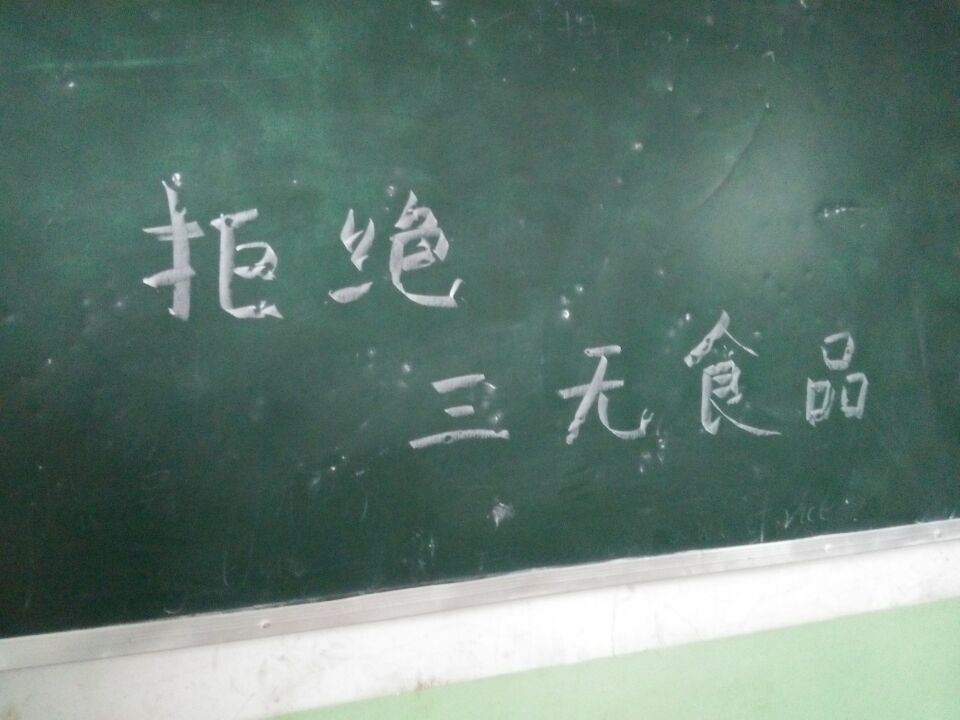 拒绝
三无食品